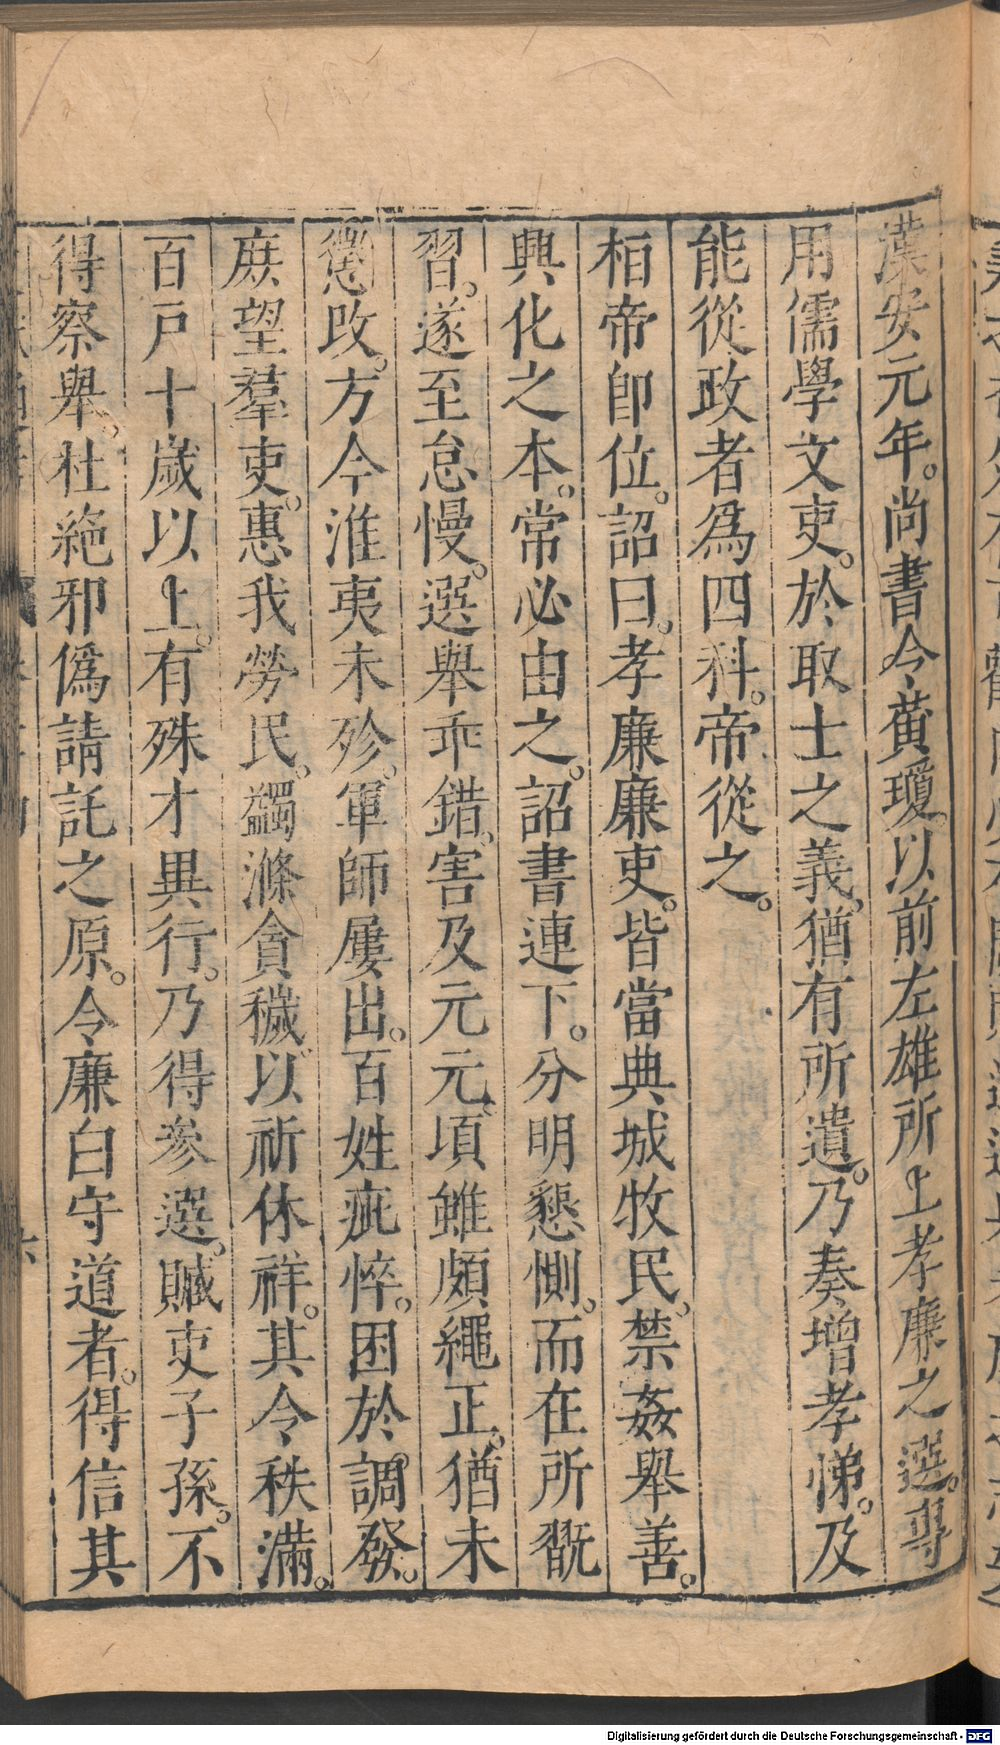 漢安元年。尚書令黃瓊。以前左雄所上孝廉之選。專
用儒學文吏。於取士之義。猶有所遺。乃奏增孝悌。及
能從政者爲四科。帝從之。
桓帝卽位。詔曰。孝廉廉吏。皆當典城牧民。禁姦舉善。
興化之本。常必由之。詔書連下。分明懇惻。而在所翫
習。遂至怠慢。選舉乖錯。害及元元。頃雖頗繩正。猶未
懲改。方今淮夷未殄。軍師屢出。百姓疵悴。困於調發。
庶望羣吏。惠我勞民。蠲滌貪穢。以祈休祥。其令秩滿。
百戶十歲以上。有殊才異行。乃得參選。贓吏子孫。不
得察舉。杜絕邪僞請託之原。令廉白守道者。得信其
六
Digitalisierung gefördert durch die Deutsche Forschungsgemeinschaft - DFG